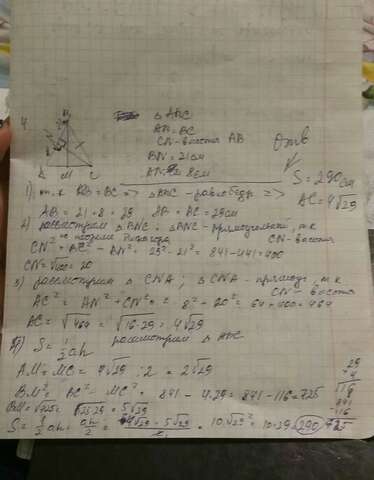 4.
B
A M C
△ ABC
AB = BC
CN - высота AB
BN = 21 см
AN = 8 см
Ответ
S = 290 см
AC = 4√29
1) т.к AB = BC => △ABC - равнобедр =>
AB = 21 + 8 = 29 BA = BC = 29см
2) рассмотрим △ BNC △BNC - прямоугольный, т к
по теореме Пифагора CN - высота
CN² = BC² - BN² = 29² - 21² = 841 - 441 = 400
CN = √400 = 20
3) рассмотрим △ CNA; △ CNA - прямоуг, т к
CN - высота
AC² = AN² + CN² = 8² + 20² = 64 + 400 = 464
AC = √464 = √16·29 = 4√29
S = 1/2 ah рассмотрим △ ABC
AM = MC = 4√29 : 2 = 2√29
BM² = BC² - MC² = 841 - 4·29 = 841 - 116 = 725
BM = √725 = √25·29 = 5√29
S = 1/2 ah = ah/2 = 4√29 · 5√29 / 2 = 10√29² = 10·29 = 290
29
4
116
841
-116
725